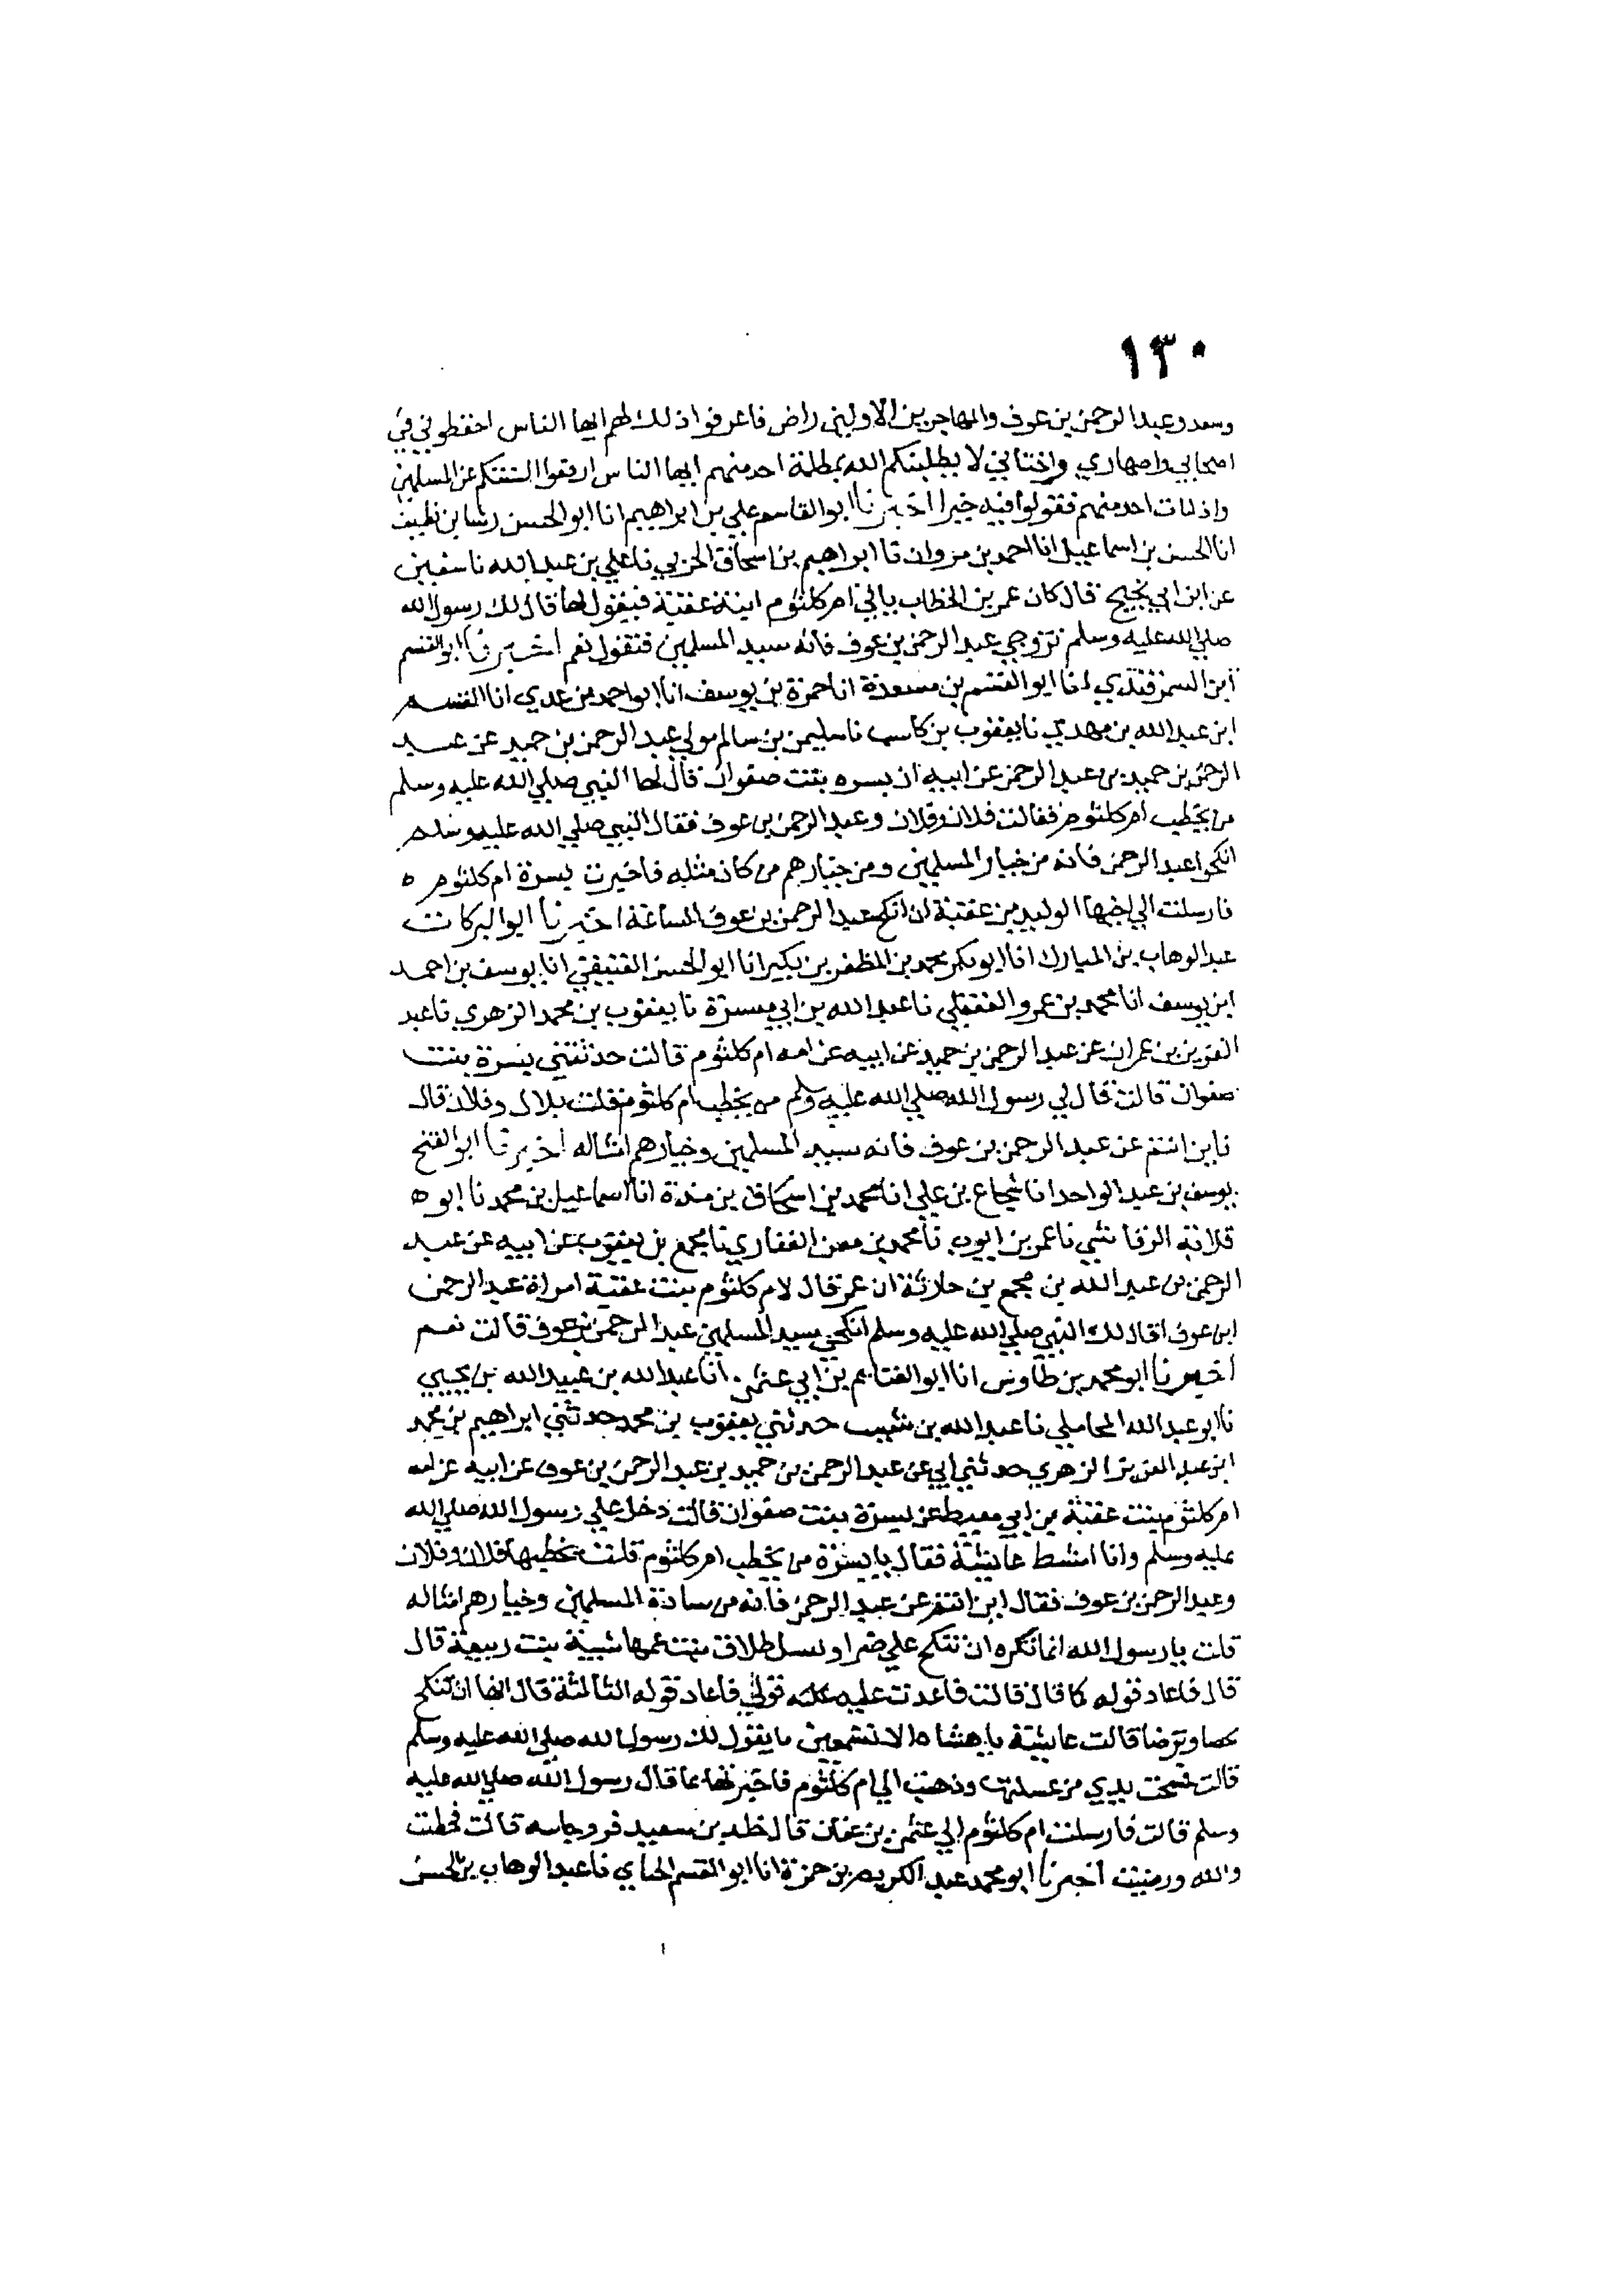 ١٣٠
وسعد وعبد الرحمن بن عوف والمهاجرين الاولين راض فاعرفوا ذلك لهم ايها الناس احفظوني في
اصحابي واصهاري واختاني لا يطلبنكم الله بمظلمة احد منهم ايها الناس ارفعوا السنتكم عن المسلمين
واذا مات احد منهم فقولوا فيه خيرا اخبرنا ابو القاسم علي بن ابراهيم انا ابو الحسن رشا بن نظيف
انا الحسن بن اسماعيل انا احمد بن مروان نا ابراهيم بن اسحاق الحربي نا علي بن عبد الله نا سفين
عن ابن ابي نجيح قال كان عمر بن الخطاب ياتي ام كلثوم ابنة عقبة فيقول لها قال لك رسول الله
صلي الله عليه وسلم تزوجي عبد الرحمن بن عوف فانه سيد المسلمين فتقول نعم اخبرنا ابو القسم
ابن السمرقندي انا ابو القسم بن مسعدة انا حمزة بن يوسف انا ابو احمد بن عدي انا القسم
ابن عبد الله بن مهدي نا يعقوب بن كاسب نا سليمن بن سالم مولي عبد الرحمن بن حميد عن عبد
الرحمن بن حميد بن عبد الرحمن عن ابيه ان بسره بنت صفوان قال لها النبي صلي الله عليه وسلم
من يخطب ام كلثوم فقالت فلان وفلان وعبد الرحمن بن عوف فقال النبي صلي الله عليه وسلم
انكحوا عبد الرحمن فانه من خيار المسلمين ومن خيارهم من كان مثله فاخبرت بسرة ام كلثوم ه
فارسلت الي اخيها الوليد بن عقبة ان انكح عبد الرحمن بن عوف الساعة اخبرنا ابو البركات
عبد الوهاب بن المبارك انا ابو بكر محمد بن المظفر بن بكير انا ابو الحسن العتيقي انا يوسف بن احمد
ابن يوسف انا محمد بن عمرو العقيلي نا عبد الله بن ابي مسرة نا يعقوب بن محمد الزهري نا عبد
العزيز بن عمران عن عبد الرحمن بن حميد عن ابيه عن امه ام كلثوم قالت حدثتني بسرة بنت
صفوان قالت قال لي رسول الله صلي الله عليه وسلم من يخطب ام كلثوم فقلت بلال وفلان قال
فاين انتم عن عبد الرحمن بن عوف فانه سيد المسلمين وخيارهم امثاله اخبرنا ابو الفتح
يوسف بن عبد الواحد انا شجاع بن علي انا محمد بن اسحاق بن مندة انا اسماعيل بن محمد نا ابو ه
قلابة الرقاشي نا عمر بن ايوب نا محمد بن معن الغفاري نا مجمع بن يعقوب عن ابيه عن عبد
الرحمن بن عبد الله بن مجمع بن حارثة ان عمر قال لام كلثوم بنت عقبة امراة عبد الرحمن
ابن عوف اقال لك النبي صلي الله عليه وسلم انكحي سيد المسلمين عبد الرحمن بن عوف قالت نعم
اخبرنا ابو محمد بن طاوس انا ابو الغنايم بن ابي عثمن انا عبد الله بن عبيد الله بن يحيي
نا ابو عبد الله المحاملي نا عبد الله بن شبيب حدثني يعقوب بن محمد حدثني ابراهيم بن محمد
ابن عبد العزيز الزهري حدثني ابي عن عبد الرحمن بن حميد بن عبد الرحمن بن عوف عن ابيه عن امه
ام كلثوم بنت عقبة بن ابي معيط عن بسرة بنت صفوان قالت دخل علي رسول الله صلي الله
عليه وسلم وانا امشط عايشة فقال يا بسرة من يخطب ام كلثوم قلت يخطبها فلان وفلان
وعبد الرحمن بن عوف فقال اين انتم عن عبد الرحمن فانه من سادة المسلمين وخيارهم امثاله
قلت يا رسول الله انما نكره ان تنكح علي ضر او نسل طلاق بنت عمها شيبة بنت ربيعة قال
قال فاعاد قوله كما قال قالت فاعدت عليه قولي فاعاد قوله الثالثة قال انها ان تنكح
تحظا وترضا قالت عايشة يا هنتاه الا تسمعين ما يقول لك رسول الله صلي الله عليه وسلم
قالت فسحت يدي من غسلها وذهبت الي ام كلثوم فاخبرتها بما قال رسول الله صلي الله عليه
وسلم قالت فارسلت ام كلثوم الي عثمن بن عفان قال خلد بن سعيد فزوجاه قالت فحظت
والله ورضيت اخبرنا ابو محمد عبد الكريم بن حمزة انا ابو القسم الحناي نا عبد الوهاب بن الحسن